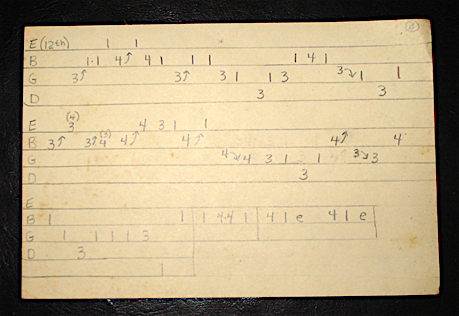 (2)
E (12th) 1 1
B 1·1 4↑ 4 1 1 1 1 4 1
G 3↑ 3↑ 3 1 1 3 3↘ 1 1
D 3 3
(4) (3)
E 3 4 3 1 1
B 3↑ 3↑ 4 4↑ 4↑ 4↑ 4
G 4↘ 4 3 1 1 3↘ 3
D 3
E
B 1 1 1 4·4 1 4 1 e 4 1 e
G 1 1 1 1 3
D 3
1